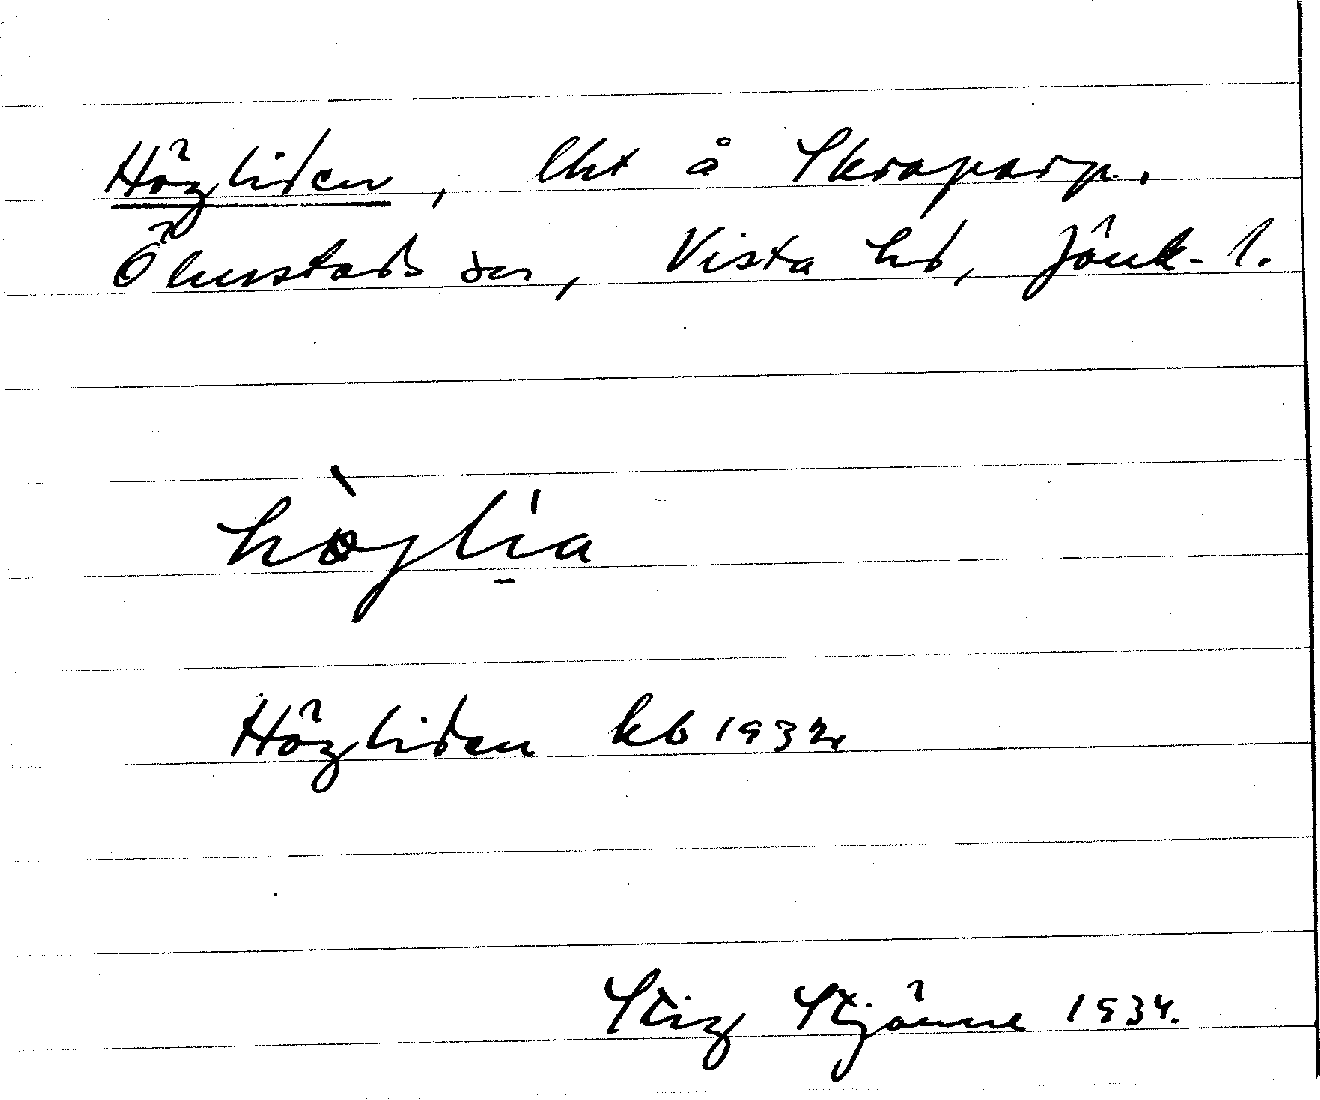 Högliden, lht å Skraparp.
Ölmstads sn, Vista hd, Jönk. l.
hö̀glí̱a
Högliden kb 1932.
Stig Stjärne 1934.